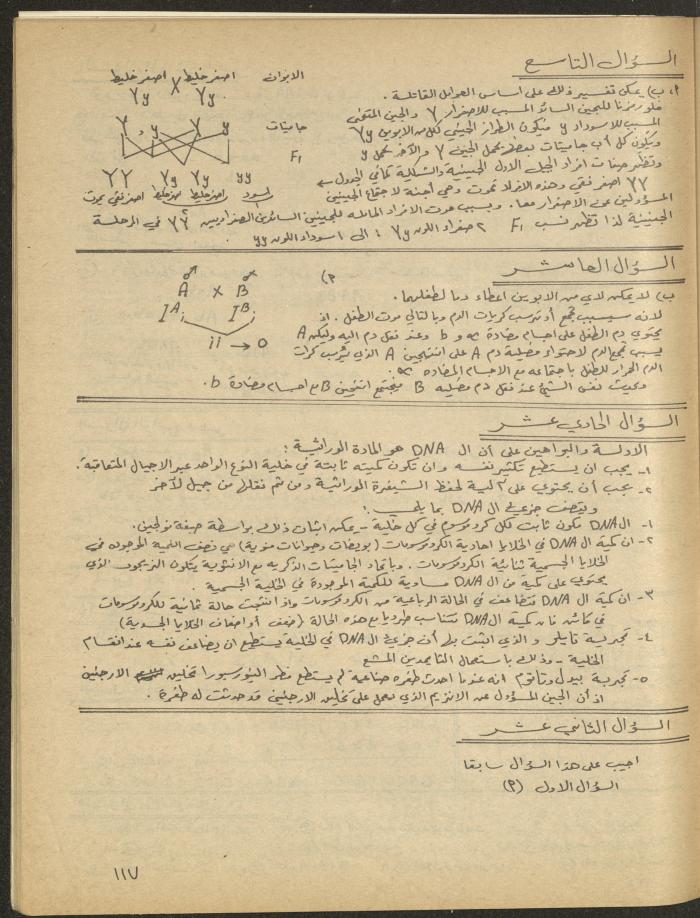 السؤال التاسع
الابوان اصفر خليط X اصفر خليط
Yy Yy
أ، ب) يمكن تفسير ذلك على اساس العوامل القاتلة.
فلو رمزنا للجين السائد المسبب للاصفرار Y والجين المتنحي
المسبب للاسوداد y فيكون الطراز الجيني لكل من الابوين Yy
ويكون كل أب جاميتات بعضها يحمل الجين Y والآخر يحمل y
وتظهر صفات افراد الجيل الاول الجينية والشكلية كما في الجدول ←
جاميتات Y , y Y y
F₁
YY Yy Yy yy
اسود اصفر خليط اصفر خليط اصفر نقي يموت
YY اصفر نقي وهذه الافراد تموت وهي أجنة لاجتماع الجينين
المسؤولين عن الاصفرار معا. وبسبب موت الافراد الحاملة للجينين السائدين الصفراويين YY في المرحلة
الجنينية لذا تظهر نسب F₁ ٢ صفراء اللون Yy : الى ١ سوداء اللون yy.
السؤال العاشر
أ)
♂ ♂
A X B
Iᴬi Iᴮi
ii → O
ب) لا يمكن لأي من الابوين اعطاء دما لطفلهما.
لانه سيسبب تجمع أو ترسب كريات الدم وبالتالي موت الطفل. اذ
يحتوي دم الطفل على اجسام مضادة a و b وعند نقل دم اليه وليكن A
يسبب تجمع الدم لاحتواء فصيلة دم A على انتيجين A الذي يترسب كرات
الدم الحمراء للطفل باجتماعه مع الاجسام المضادة a.
ويحدث نفس الشيء عند نقل دم فصيلة B فيتجمع انتيجين B مع اجسام مضادة b.
السؤال الحادي عشر
الادلة والبراهين على أن ال DNA هو المادة الوراثية:
١- يجب ان يستطيع تكثير نفسه وان تكون كميته ثابتة في خلية النوع الواحد عبر الاجيال المتعاقبة.
٢- يجب أن يحتوي على آلية لحفظ الشيفرة الوراثية ومن ثم نقلها من جيل لآخر
ويتصف جزيء ال DNA بما يلي:
١- ال DNA مكون ثابت لكل كروموسوم في كل خلية - يمكن اثبات ذلك بواسطة صبغة فولجين.
٢- ان كمية ال DNA في الخلايا احادية الكروموسومات (بويضات وحيوانات منوية) هي نصف الكمية الموجودة في
الخلايا الجسمية ثنائية الكروموسومات. وباتحاد الجاميتات الذكرية مع الانثوية يتكون الزيجوت الذي
يحتوي على كمية من ال DNA مساوية للكمية الموجودة في الخلية الجسمية.
٣- ان كمية ال DNA تتضاعف في الحالة الرباعية من الكروموسومات واذا انتجت حالة ثمانية للكروموسومات
في كائن فان كمية ال DNA تتناسب طرديا مع هذه الحالة (ضعف أو اضعاف الخلايا الجسدية)
٤- تجربة تايلر والذي اثبت بها أن جزيء ال DNA في الخلية يستطيع ان يضاعف نفسه عند انقسام
الخلية - وذلك باستعمال الثايمدين المشع
٥- تجربة بيدل وتاتوم انه عندما احدث طفرة صناعية لم يستطع فطر النيوروسبورا تخليق الارجنين
اذ أن الجين المسؤول عن الانزيم الذي يعمل على تخليق الارجنين قد حدثت له طفرة.
السؤال الثاني عشر
اجيب على هذا السؤال سابقا
السؤال الاول (أ)
١١٧